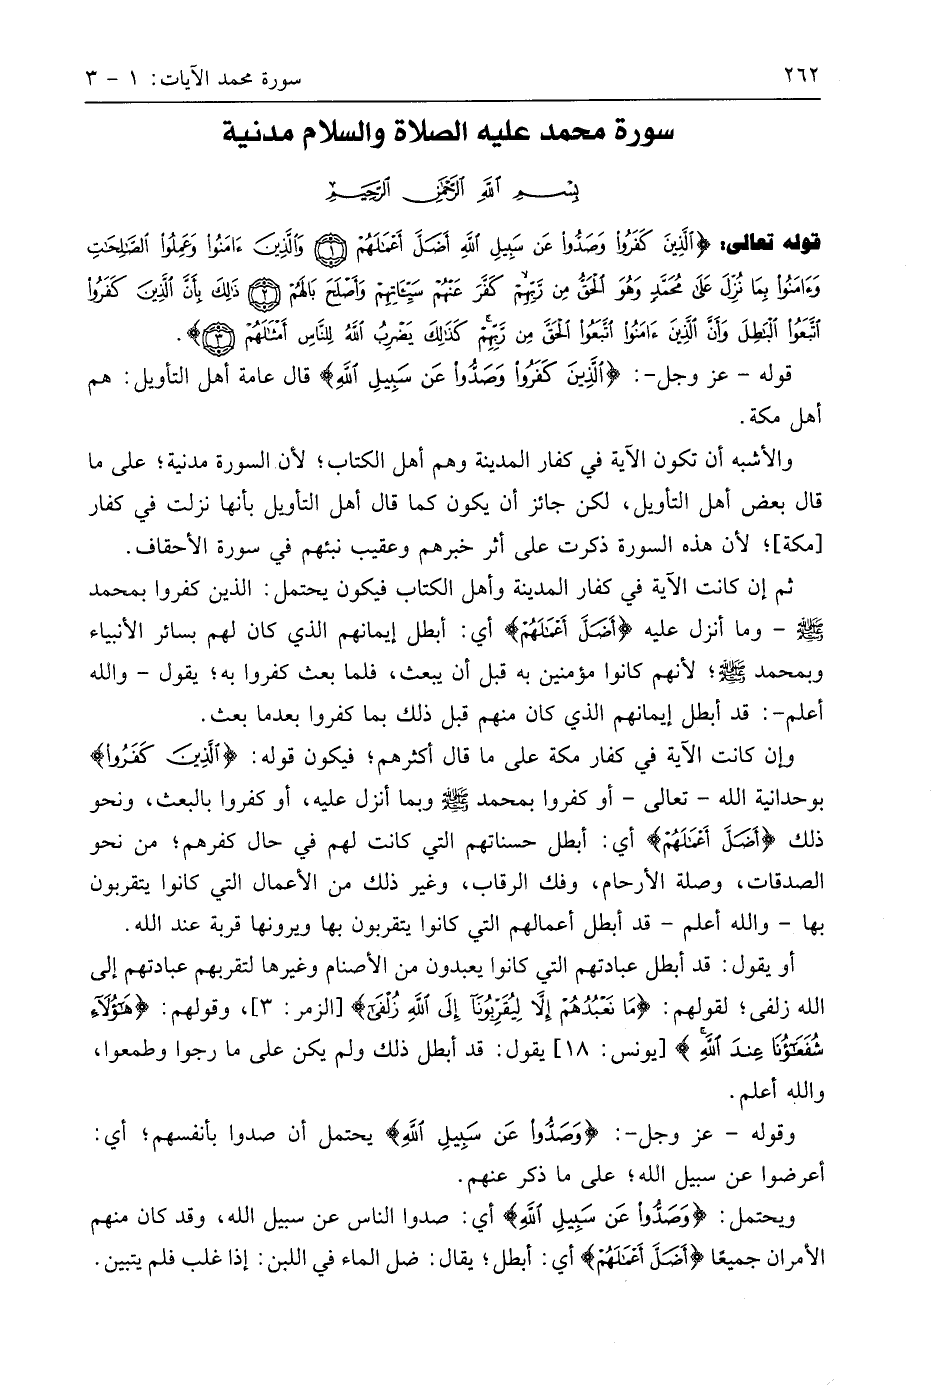 ٢٦٢ سورة محمد الآيات: ١ - ٣
سورة محمد عليه الصلاة والسلام مدنية
بِسْمِ ٱللَّهِ ٱلرَّحْمَٰنِ ٱلرَّحِيمِ
قوله تعالى: ﴿ٱلَّذِينَ كَفَرُوا۟ وَصَدُّوا۟ عَن سَبِيلِ ٱللَّهِ أَضَلَّ أَعْمَٰلَهُمْ ﴿١﴾ وَٱلَّذِينَ ءَامَنُوا۟ وَعَمِلُوا۟ ٱلصَّٰلِحَٰتِ
وَءَامَنُوا۟ بِمَا نُزِّلَ عَلَىٰ مُحَمَّدٍ وَهُوَ ٱلْحَقُّ مِن رَّبِّهِمْ كَفَّرَ عَنْهُمْ سَيِّـَٔاتِهِمْ وَأَصْلَحَ بَالَهُمْ ﴿٢﴾ ذَٰلِكَ بِأَنَّ ٱلَّذِينَ كَفَرُوا۟
ٱتَّبَعُوا۟ ٱلْبَٰطِلَ وَأَنَّ ٱلَّذِينَ ءَامَنُوا۟ ٱتَّبَعُوا۟ ٱلْحَقَّ مِن رَّبِّهِمْ كَذَٰلِكَ يَضْرِبُ ٱللَّهُ لِلنَّاسِ أَمْثَٰلَهُمْ ﴿٣﴾﴾.
قوله - عز وجل-: ﴿ٱلَّذِينَ كَفَرُوا۟ وَصَدُّوا۟ عَن سَبِيلِ ٱللَّهِ﴾ قال عامة أهل التأويل: هم
أهل مكة.
والأشبه أن تكون الآية في كفار المدينة وهم أهل الكتاب؛ لأن السورة مدنية؛ على ما
قال بعض أهل التأويل، لكن جائز أن يكون كما قال أهل التأويل بأنها نزلت في كفار
[مكة]؛ لأن هذه السورة ذكرت على أثر خبرهم وعقيب نبئهم في سورة الأحقاف.
ثم إن كانت الآية في كفار المدينة وأهل الكتاب فيكون يحتمل: الذين كفروا بمحمد
ﷺ - وما أنزل عليه ﴿أَضَلَّ أَعْمَٰلَهُمْ﴾ أي: أبطل إيمانهم الذي كان لهم بسائر الأنبياء
وبمحمد ﷺ؛ لأنهم كانوا مؤمنين به قبل أن يبعث، فلما بعث كفروا به؛ يقول - والله
أعلم-: قد أبطل إيمانهم الذي كان منهم قبل ذلك بما كفروا بعدما بعث.
وإن كانت الآية في كفار مكة على ما قال أكثرهم؛ فيكون قوله: ﴿ٱلَّذِينَ كَفَرُوا۟﴾
بوحدانية الله - تعالى - أو كفروا بمحمد ﷺ وبما أنزل عليه، أو كفروا بالبعث، ونحو
ذلك ﴿أَضَلَّ أَعْمَٰلَهُمْ﴾ أي: أبطل حسناتهم التي كانت لهم في حال كفرهم؛ من نحو
الصدقات، وصلة الأرحام، وفك الرقاب، وغير ذلك من الأعمال التي كانوا يتقربون
بها - والله أعلم - قد أبطل أعمالهم التي كانوا يتقربون بها ويرونها قربة عند الله.
أو يقول: قد أبطل عبادتهم التي كانوا يعبدون من الأصنام وغيرها لتقربهم عبادتهم إلى
الله زلفى؛ لقولهم: ﴿مَا نَعْبُدُهُمْ إِلَّا لِيُقَرِّبُونَآ إِلَى ٱللَّهِ زُلْفَىٰٓ﴾ [الزمر: ٣]، وقولهم: ﴿هَٰٓؤُلَآءِ
شُفَعَٰٓؤُنَا عِندَ ٱللَّهِۚ﴾ [يونس: ١٨] يقول: قد أبطل ذلك ولم يكن على ما رجوا وطمعوا،
والله أعلم.
وقوله - عز وجل-: ﴿وَصَدُّوا۟ عَن سَبِيلِ ٱللَّهِ﴾ يحتمل أن صدوا بأنفسهم؛ أي:
أعرضوا عن سبيل الله؛ على ما ذكر عنهم.
ويحتمل: ﴿وَصَدُّوا۟ عَن سَبِيلِ ٱللَّهِ﴾ أي: صدوا الناس عن سبيل الله، وقد كان منهم
الأمران جميعًا ﴿أَضَلَّ أَعْمَٰلَهُمْ﴾ أي: أبطل؛ يقال: ضل الماء في اللبن: إذا غلب فلم يتبين.